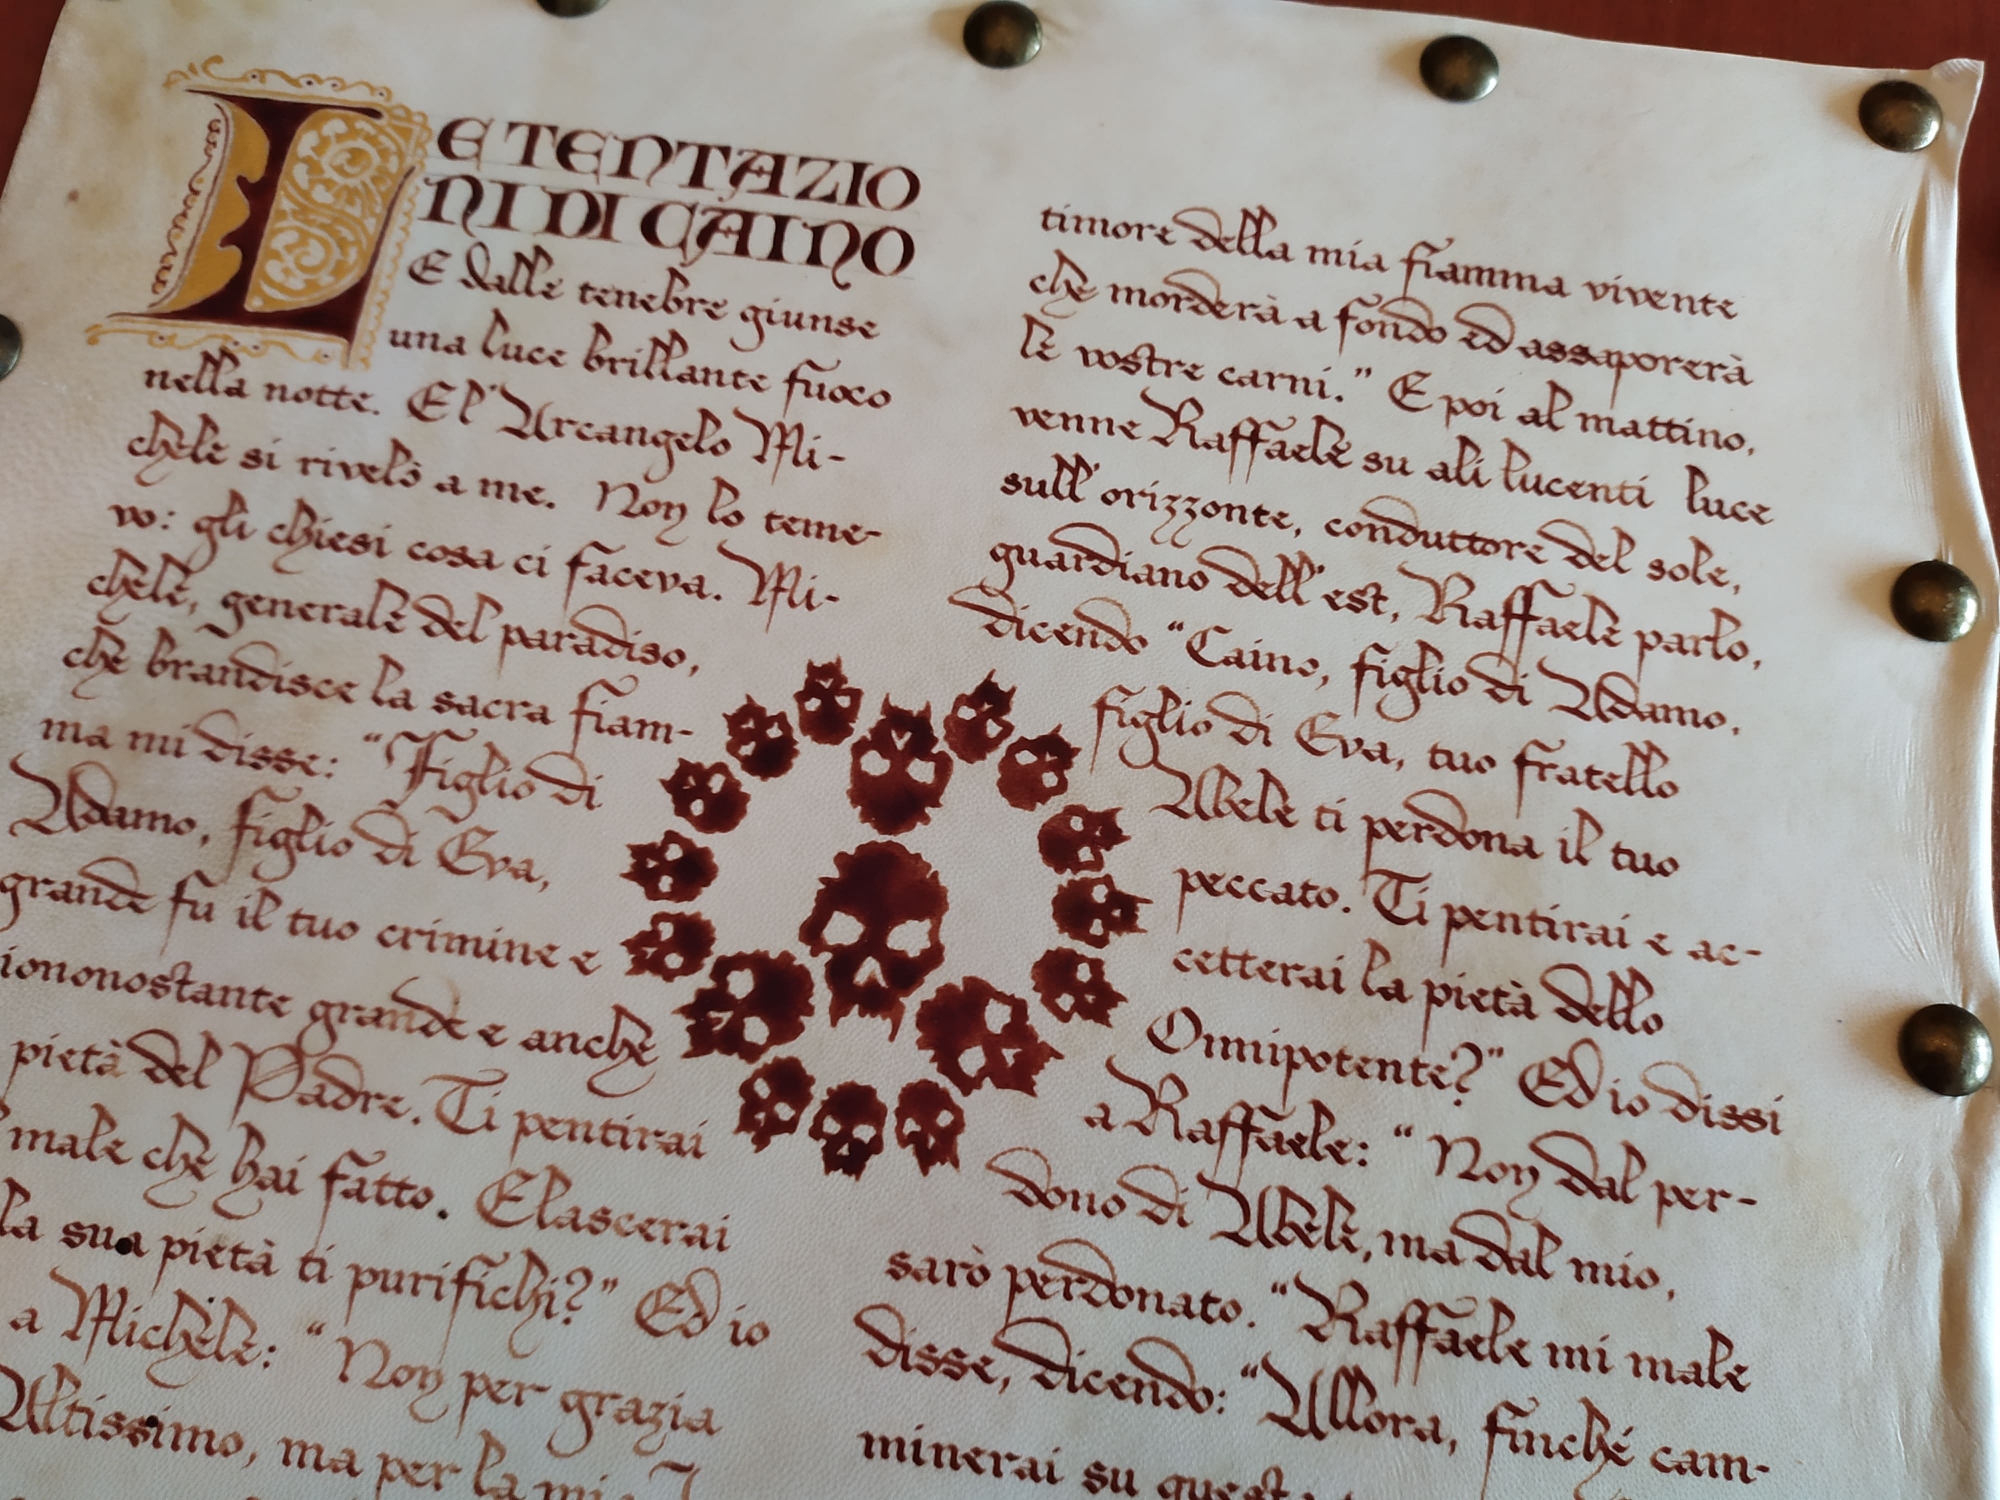 LE TENTAZIO
NI DI CAINO
E dalle tenebre giunse
una luce brillante fuoco
nella notte. E l'Arcangelo Mi-
chele si rivelò a me. Non lo teme-
vo: gli chiesi cosa ci faceva. Mi-
chele, generale del paradiso,
che brandisce la sacra fiam-
ma mi disse: "Figlio di
Adamo, figlio di Eva,
grande fu il tuo crimine e
iononostante grande e anche
pietà del Padre. Ti pentirai
male che hai fatto. E lascerai
la sua pietà ti purifichi?" Ed io
a Michele: "Non per grazia
Altissimo, ma per la
timore della mia fiamma vivente
che morderà a fondo ed assaporerà
le vostre carni." E poi al mattino,
venne Raffaele su ali lucenti luce
sull'orizzonte, conduttore del sole,
guardiano dell'est, Raffaele parlo,
dicendo "Caino, figlio di Adamo,
figlio di Eva, tuo fratello
Abele ti perdona il tuo
peccato. Ti pentirai e ac-
cetterai la pietà dello
Onnipotente?" Ed io dissi
a Raffaele: "Non dal per-
dono di Abele, ma dal mio,
sarò perdonato. "Raffaele mi male
disse, dicendo: "Allora, finché cam-
minerai su